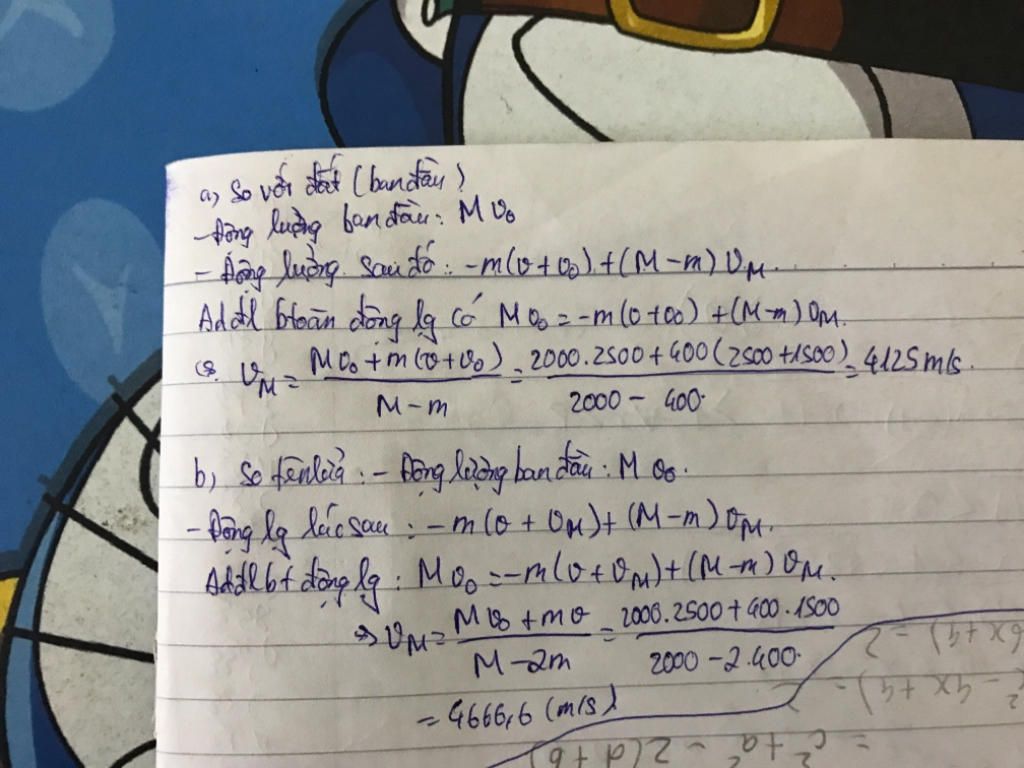 a, So với đất (ban đầu)
- Động lượng ban đầu: Mv₀
- Động lượng sau đó: -m(v+v₀)+(M-m)v_M.
Adđl btoàn động lg có Mv₀=-m(v+v₀)+(M-m)v_M.
v_M = (Mv₀+m(v+v₀))/(M-m) = (2000.2500+400(2500+1500))/(2000-400) = 4125m/s.
b, So tên lửa: - Động lượng ban đầu: Mv₀.
- Động lg lúc sau: -m(v+v_M)+(M-m)v_M.
Adđlbt động lg: Mv₀=-m(v+v_M)+(M-m)v_M.
=> v_M = (Mv₀+mv)/(M-2m) = (2000.2500+400.1500)/(2000-2.400)
= 4666,6 (m/s)